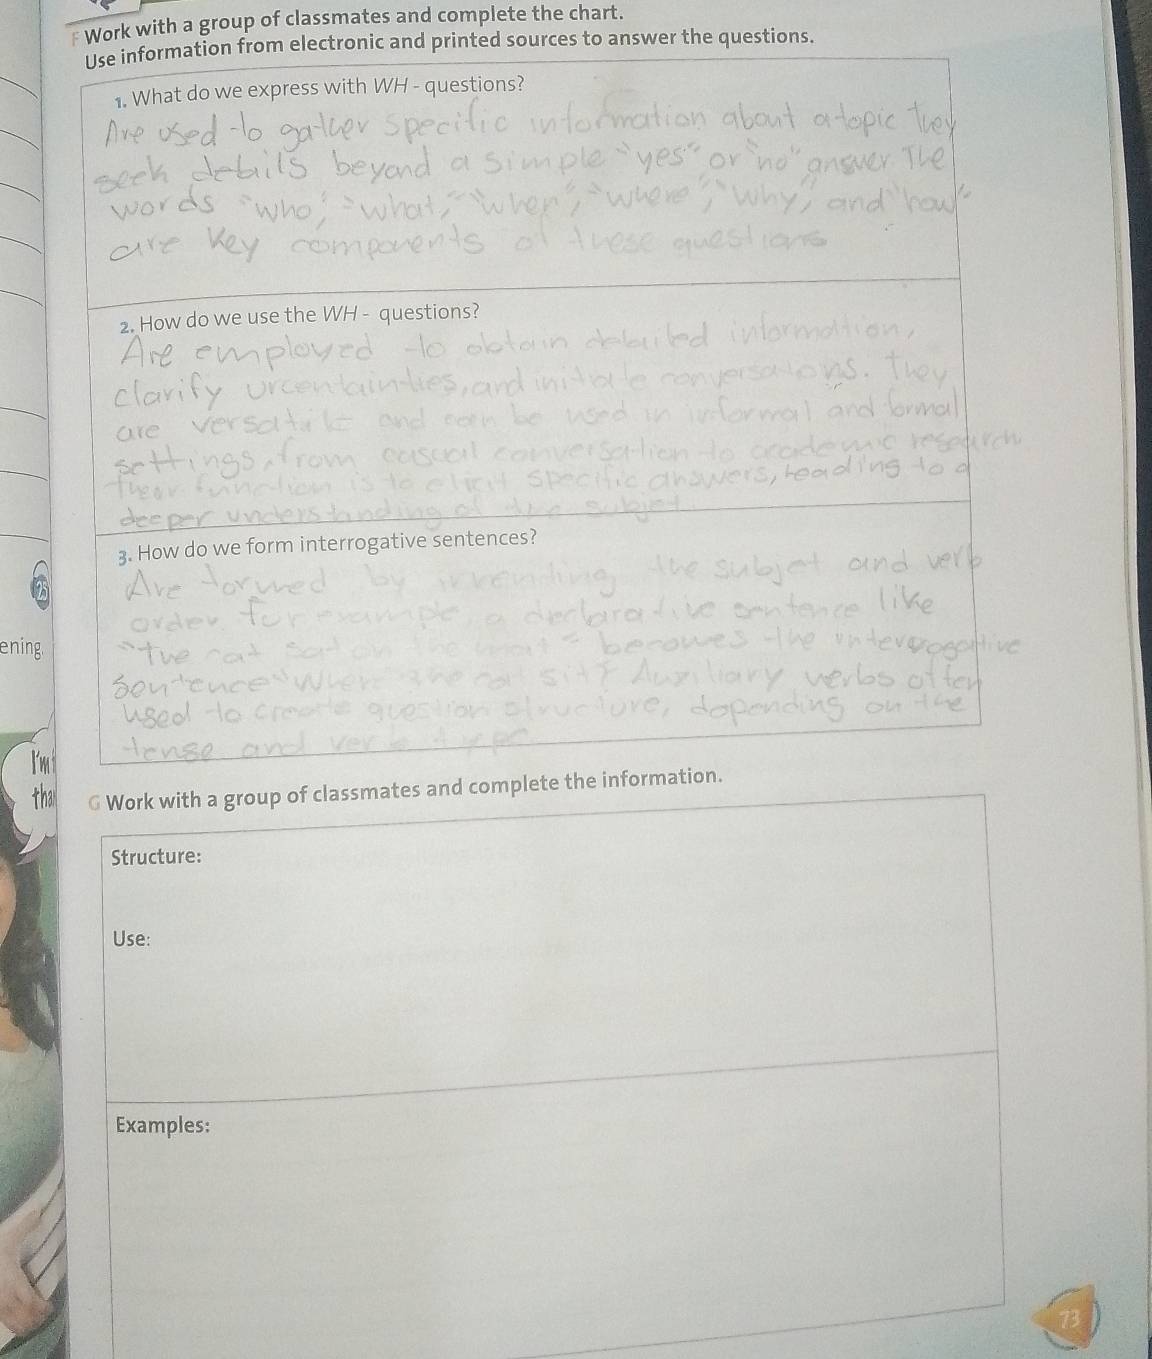 F Work with a group of classmates and complete the chart.
Use information from electronic and printed sources to answer the questions.
1. What do we express with WH - questions?
Are used to gather specific information about a topic They
seek details beyond a simple "yes" or "no" answer. The
words "who," "what," "when", "where", "why", and "how"
are key components of these questions
2. How do we use the WH - questions?
Are employed to obtain detailed information,
clarify uncertainties, and initiate conversations. They
are versatile and can be used in informal and formal
settings, from casual conversation to academic research
Their function is to elicit specific answers, leading to a
deeper understanding of the subjet
3. How do we form interrogative sentences?
Are formed by inverting the subjet and verb
order. for example, a declarative sentence like
"The cat sat on the mat" becomes the interrogative
sentence "Where the cat sit? Auxiliary verbs often
used to create question structure, depending on the
tense and verb type
G Work with a group of classmates and complete the information.
Structure:
Use:
Examples:
25
ening.
I'm
tha
73